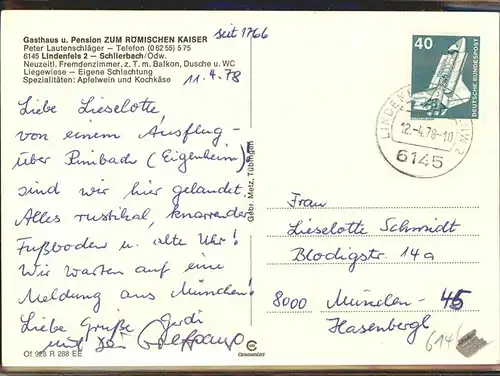 Gasthaus u. Pension ZUM RÖMISCHEN KAISER
seit 1766
Peter Lautenschläger – Telefon (0 62 55) 5 75
6145 Lindenfels 2 – Schlierbach/Odw.
Neuzeitl. Fremdenzimmer, z. T. m. Balkon, Dusche u. WC
Liegewiese – Eigene Schlachtung
Spezialitäten: Apfelwein und Kochkäse
11.4.78
Liebe Lieselotte
von einem Ausflug
über Rimbach (Eigenheim)
sind wir hier gelandet.
Alles rustikal, knarrender
Fußboden u. alte Uhr!
Wir warten auf eine
Meldung aus München!
Liebe Grüße Gerdi
und
Of 928 R 288 EE
Gebr. Metz, Tübingen
40
DEUTSCHE BUNDESPOST
12.-4.78-10
6145
Frau
Lieselotte Schmidt
Blodigstr 14a
8000 München - 45
Hasenbergl